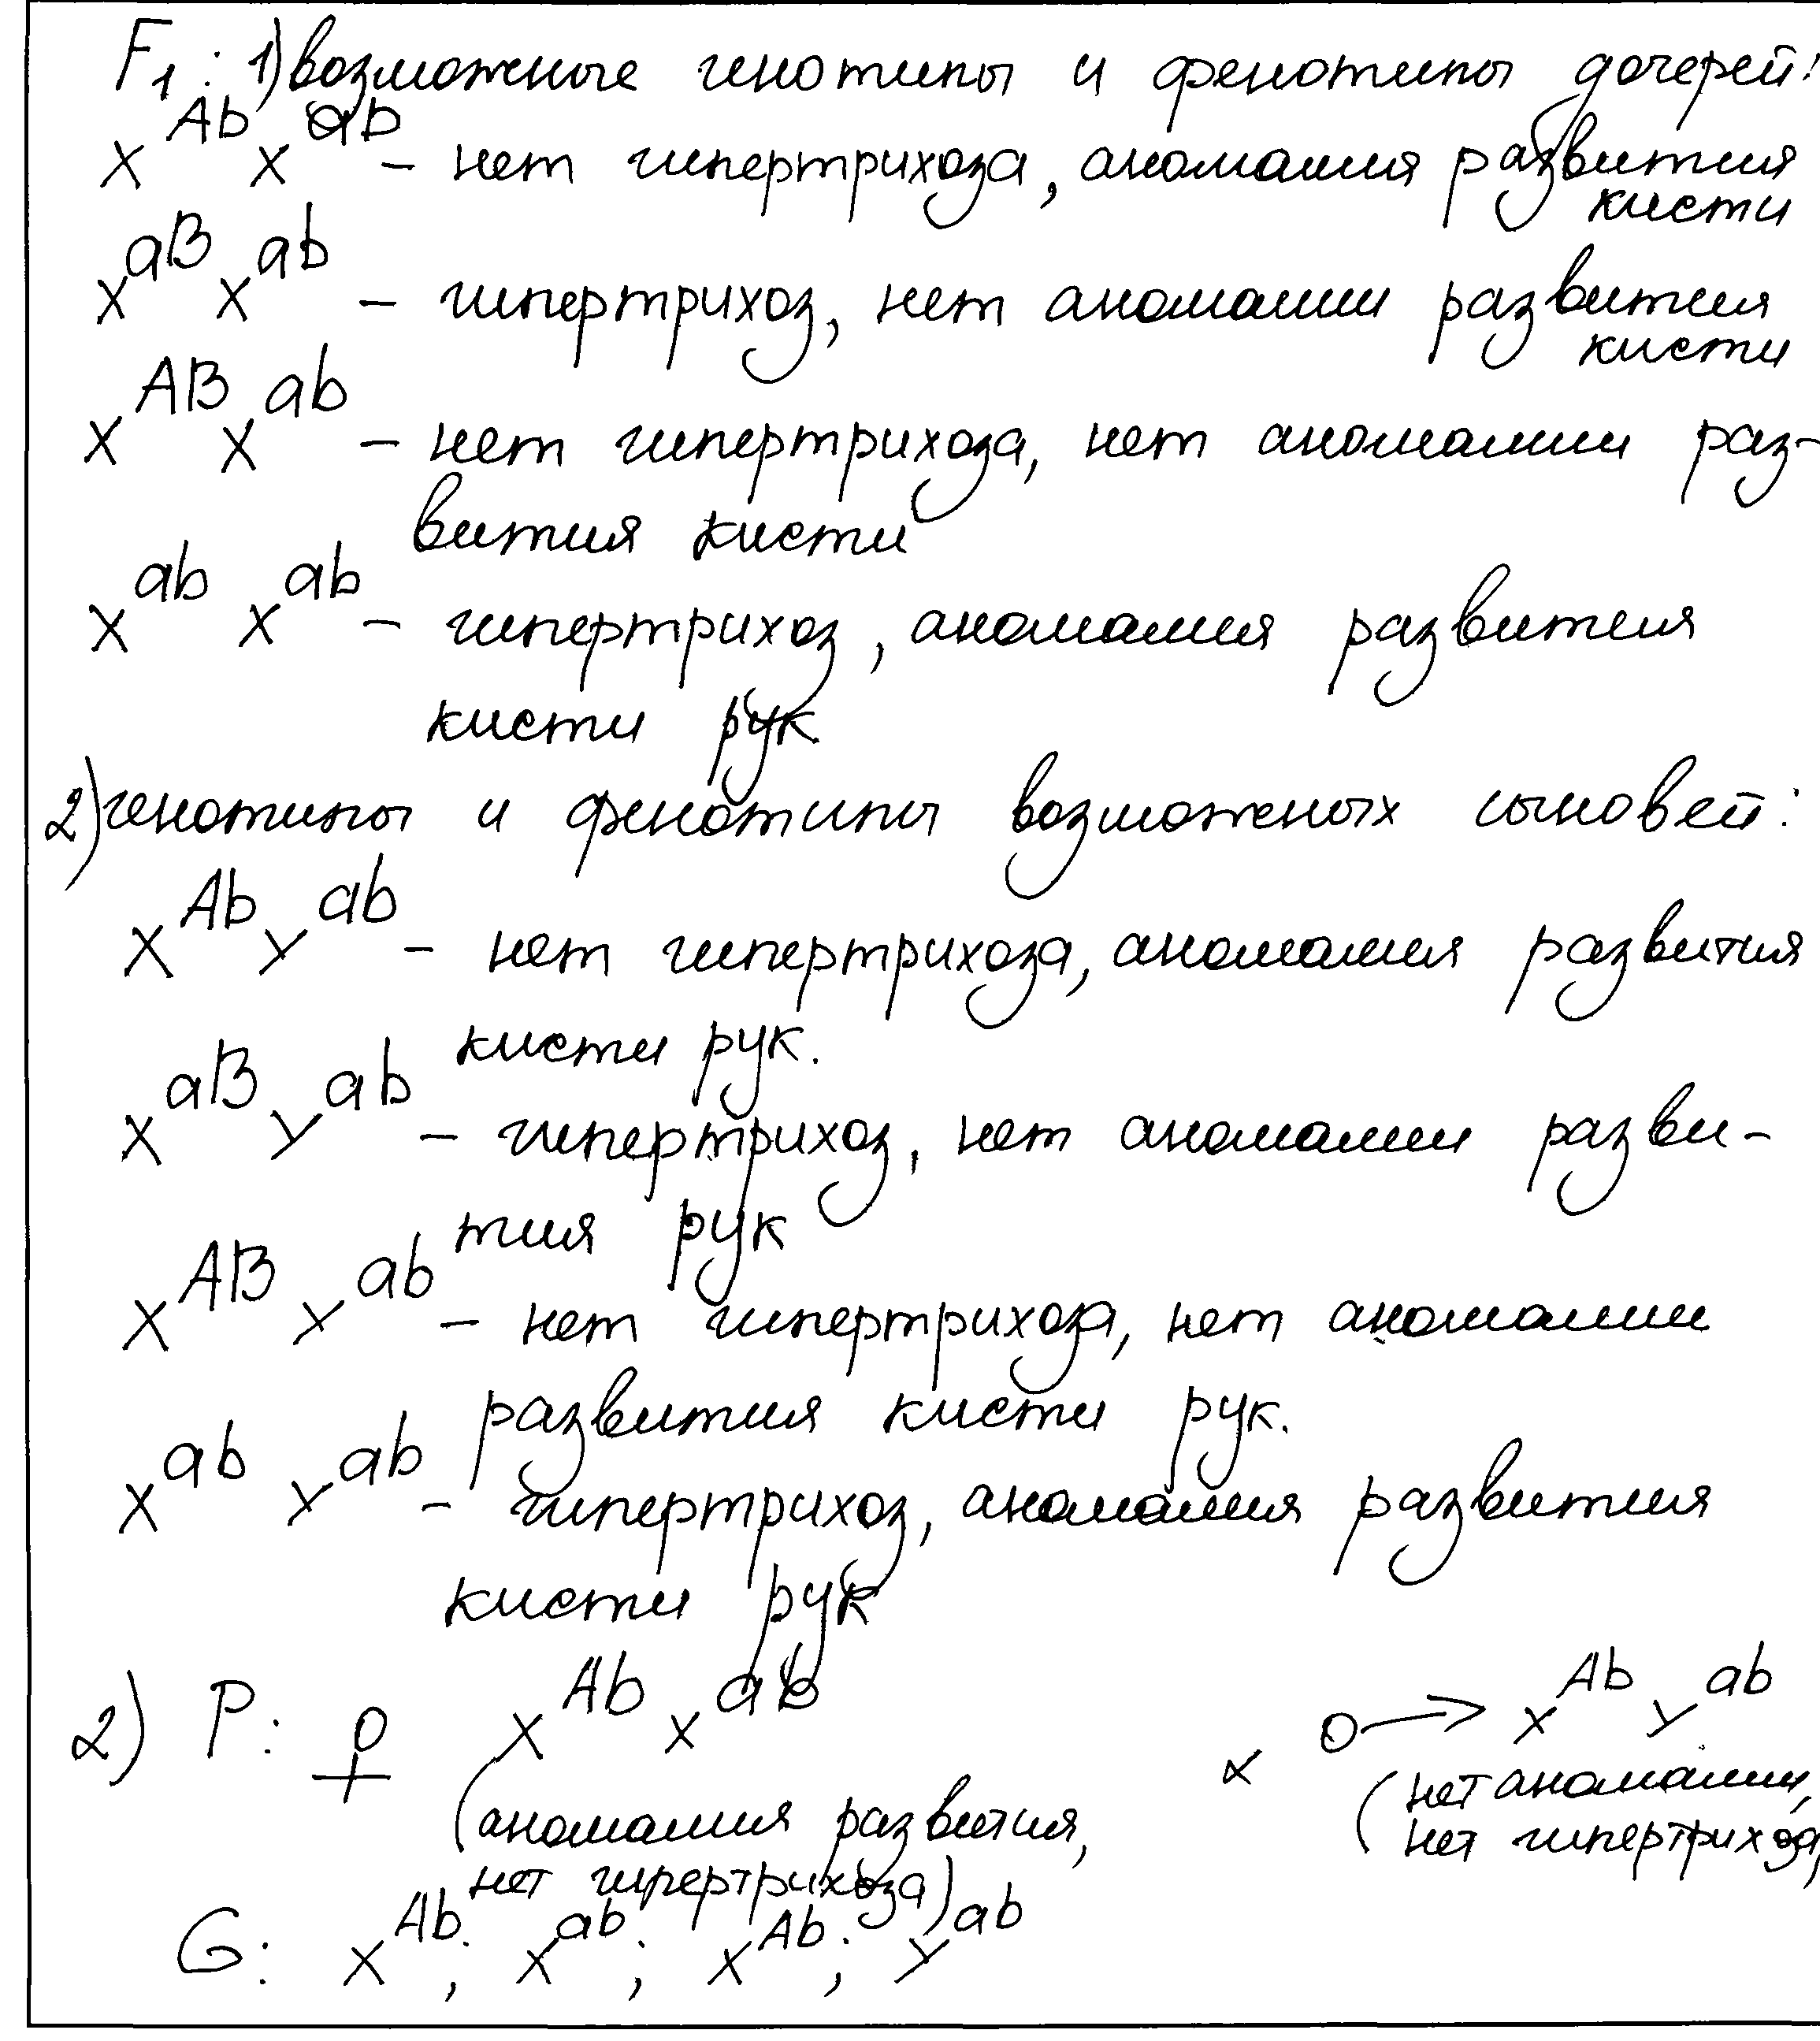 F₁: 1) возможные генотипы и фенотипы дочерей:
X^Ab X^ab – нет гипертрихоза, аномалия развития
кисти
X^aB X^ab – гипертрихоз, нет аномалии развития
кисти
X^AB X^ab – нет гипертрихоза, нет аномалии раз-
вития кисти
X^ab X^ab – гипертрихоз, аномалия развития
кисти рук.
2) генотипы и фенотипы возможных сыновей:
X^Ab Y^ab – нет гипертрихоза, аномалия развития
кисти рук.
X^aB Y^ab – гипертрихоз, нет аномалии разви-
тия рук
X^AB Y^ab – нет гипертрихоза, нет аномалии
развития кисти рук.
X^ab Y^ab – гипертрихоз, аномалия развития
кисти рук
2) P: ♀ X^Ab X^ab x ♂ X^Ab Y^ab
(аномалия развития, (нет аномалии,
нет гипертрихоза) нет гипертрихоза)
G: X^Ab; X^ab; X^Ab; Y^ab